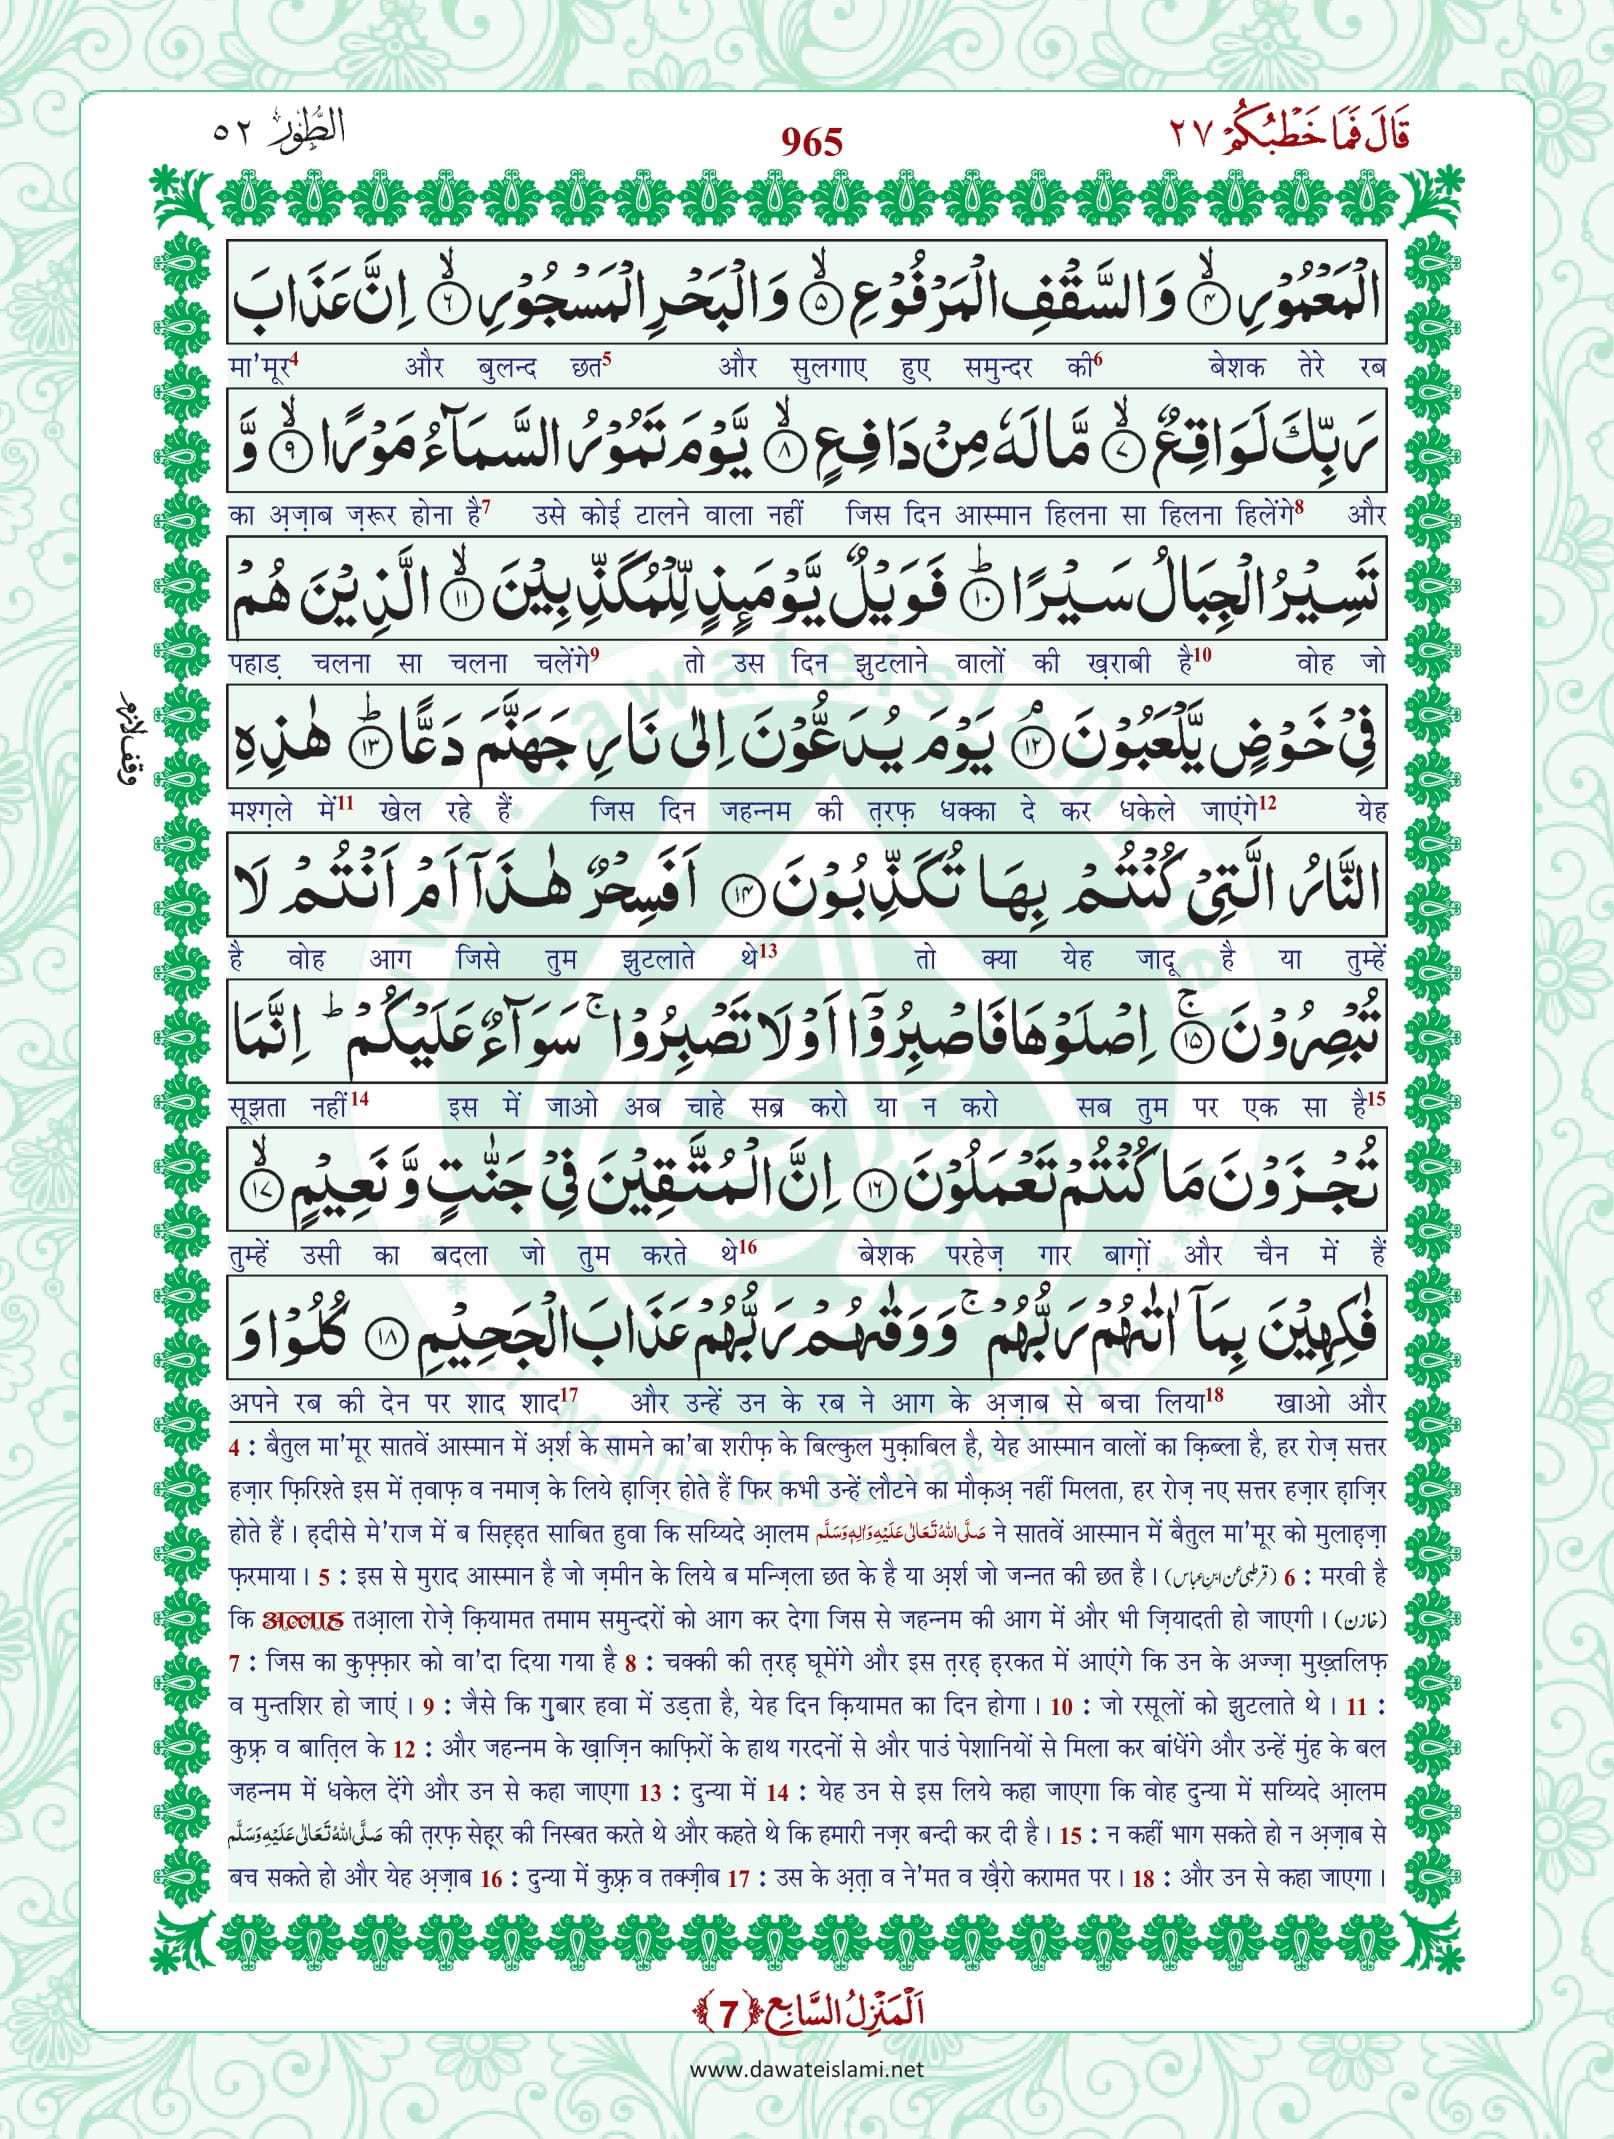 قَالَ فَمَا خَطْبُكُمْ ٢٧
965
الطُّوْر ٥٢
الْمَعْمُوْرِ ﴿۴﴾ۙ وَالسَّقْفِ الْمَرْفُوْعِ ﴿۵﴾ۙ وَالْبَحْرِ الْمَسْجُوْرِ ﴿۶﴾ۙ اِنَّ عَذَابَ
मा'मूर4 और बुलन्द छत5 और सुलगाए हुए समुन्दर की6 बेशक तेरे रब
رَبِّكَ لَوَاقِعٌ ﴿۷﴾ۙ مَّا لَهٗ مِنْ دَافِعٍ ﴿۸﴾ۙ يَّوْمَ تَمُوْرُ السَّمَآءُ مَوْرًا ﴿۹﴾ۙ وَّ
का अ़ज़ाब ज़रूर होना है7 उसे कोई टालने वाला नहीं जिस दिन आस्मान हिलना सा हिलना हिलेंगे8 और
تَسِيْرُ الْجِبَالُ سَيْرًا ﴿۱۰﴾ؕ فَوَيْلٌ يَّوْمَئِذٍ لِّلْمُكَذِّبِيْنَ ﴿۱۱﴾ۙ الَّذِيْنَ هُمْ
पहाड़ चलना सा चलना चलेंगे9 तो उस दिन झुटलाने वालों की ख़राबी है10 वोह जो
فِيْ خَوْضٍ يَّلْعَبُوْنَ ﴿۱۲﴾ۘ يَوْمَ يُدَعُّوْنَ اِلٰى نَارِ جَهَنَّمَ دَعًّا ﴿۱۳﴾ؕ هٰذِهِ
وقف لازم
मश्ग़ले में11 खेल रहे हैं जिस दिन जहन्नम की त़रफ़ धक्का दे कर धकेले जाएंगे12 येह
النَّارُ الَّتِيْ كُنْتُمْ بِهَا تُكَذِّبُوْنَ ﴿۱۴﴾ اَفَسِحْرٌ هٰذَآ اَمْ اَنْتُمْ لَا
है वोह आग जिसे तुम झुटलाते थे13 तो क्या येह जादू है या तुम्हें
تُبْصِرُوْنَ ﴿۱۵﴾ۚ اِصْلَوْهَا فَاصْبِرُوْٓا اَوْ لَا تَصْبِرُوْا ۚ سَوَآءٌ عَلَيْكُمْ ؕ اِنَّمَا
सूझता नहीं14 इस में जाओ अब चाहे सब्र करो या न करो सब तुम पर एक सा है15
تُجْزَوْنَ مَا كُنْتُمْ تَعْمَلُوْنَ ﴿۱۶﴾ اِنَّ الْمُتَّقِيْنَ فِيْ جَنّٰتٍ وَّ نَعِيْمٍ ﴿۱۷﴾ۙ
तुम्हें उसी का बदला जो तुम करते थे16 बेशक परहेज़ गार बाग़ों और चैन में हैं
فٰكِهِيْنَ بِمَآ اٰتٰىهُمْ رَبُّهُمْ ۚ وَوَقٰىهُمْ رَبُّهُمْ عَذَابَ الْجَحِيْمِ ﴿۱۸﴾ كُلُوْا وَ
अपने रब की देन पर शाद शाद17 और उन्हें उन के रब ने आग के अ़ज़ाब से बचा लिया18 खाओ और
4 : बैतुल मा'मूर सातवें आस्मान में अ़र्श के सामने का'बा शरीफ़ के बिल्कुल मुक़ाबिल है, येह आस्मान वालों का क़िब्ला है, हर रोज़ सत्तर
हज़ार फ़िरिश्ते इस में त़वाफ़ व नमाज़ के लिये ह़ाज़िर होते हैं फिर कभी उन्हें लौटने का मौक़अ़ नहीं मिलता, हर रोज़ नए सत्तर हज़ार ह़ाज़िर
होते हैं । ह़दीसे मे'राज में ब सिह़्ह़त साबित हुवा कि सय्यिदे आ़लम صَلَّى اللهُ تَعَالٰى عَلَيْهِ وَاٰلِهٖ وَسَلَّم ने सातवें आस्मान में बैतुल मा'मूर को मुलाह़ज़ा
फ़रमाया । 5 : इस से मुराद आस्मान है जो ज़मीन के लिये ब मन्ज़िला छत के है या अ़र्श जो जन्नत की छत है । (قرطبی عن ابن عباس) 6 : मरवी है
कि अल्लाह तआ़ला रोज़े क़ियामत तमाम समुन्दरों को आग कर देगा जिस से जहन्नम की आग में और भी ज़ियादती हो जाएगी । (خازن)
7 : जिस का कुफ़्फ़ार को वा'दा दिया गया है 8 : चक्की की त़रह़ घूमेंगे और इस त़रह़ ह़रकत में आएंगे कि उन के अज्ज़ा मुख़्तलिफ़
व मुन्तशिर हो जाएं । 9 : जैसे कि गु़बार हवा में उड़ता है, येह दिन क़ियामत का दिन होगा । 10 : जो रसूलों को झुटलाते थे । 11 :
कुफ़्र व बात़िल के 12 : और जहन्नम के ख़ाज़िन काफ़िरों के हाथ गरदनों से और पाउं पेशानियों से मिला कर बांधेंगे और उन्हें मुंह के बल
जहन्नम में धकेल देंगे और उन से कहा जाएगा 13 : दुन्या में 14 : येह उन से इस लिये कहा जाएगा कि वोह दुन्या में सय्यिदे आ़लम
صَلَّى اللهُ تَعَالٰى عَلَيْهِ وَسَلَّم की त़रफ़ सेह़्र की निस्बत करते थे और कहते थे कि हमारी नज़र बन्दी कर दी है । 15 : न कहीं भाग सकते हो न अ़ज़ाब से
बच सकते हो और येह अ़ज़ाब 16 : दुन्या में कुफ़्र व तक्ज़ीब 17 : उस के अ़त़ा व ने'मत व ख़ैरो करामत पर । 18 : और उन से कहा जाएगा ।
اَلْمَنْزِلُ السَّابِع ﴿7﴾
www.dawateislami.net